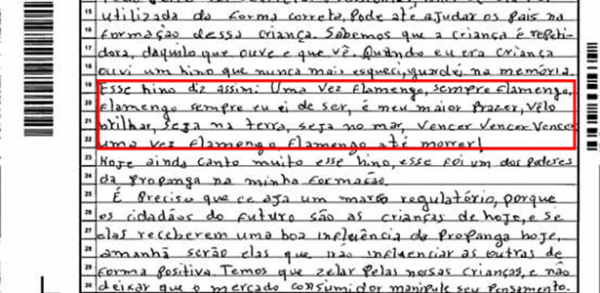 utilizada da forma correta, Pode até ajudar os Pais na
formação dessa criança. Sabemos que a criança é repeti-
dora, daquilo que ouve e que vê. Quando eu era criança
ouvi um hino que nunca mais esqueci, guardei na memória.
Esse hino diz assim: Uma vez Flamengo, sempre Flamengo,
Flamengo sempre eu ei de ser, é meu maior Prazer, velo
brilhar, seja na terra, seja no mar, Vencer Vencer Vencer
uma vez Flamengo, Flamengo até morrer!
Hoje ainda canto muito esse hino, esse foi um dos Poderes
da Propanga na minha formação.
É Preciso que ce aja um marco regulatório, porque
os cidadãos do futuro são as crianças de hoje, e se
elas receberem uma boa influência da Propanga hoje,
amanhã serão elas que irão influenciar as outras de
forma positiva. Temos que zelar Pelas nossas crianças, e não
deixar que o mercado consumidor manipule seu Pensamento.